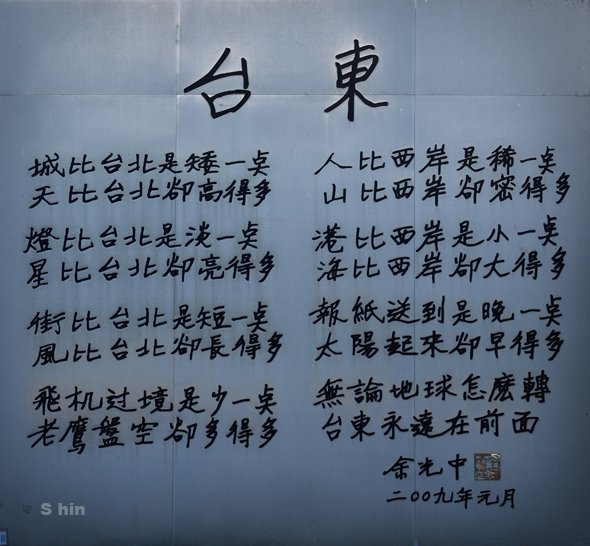 台東
城比台北是矮一点
天比台北卻高得多
燈比台北是淡一点
星比台北卻亮得多
街比台北是短一点
風比台北卻長得多
飛机过境是少一点
老鷹盤空卻多得多
人比西岸是稀一点
山比西岸卻密得多
港比西岸是小一点
海比西岸卻大得多
報紙送到是晚一点
太陽起來卻早得多
無論地球怎麼轉
台東永遠在前面
余光中
二〇〇九年元月
S hin
8